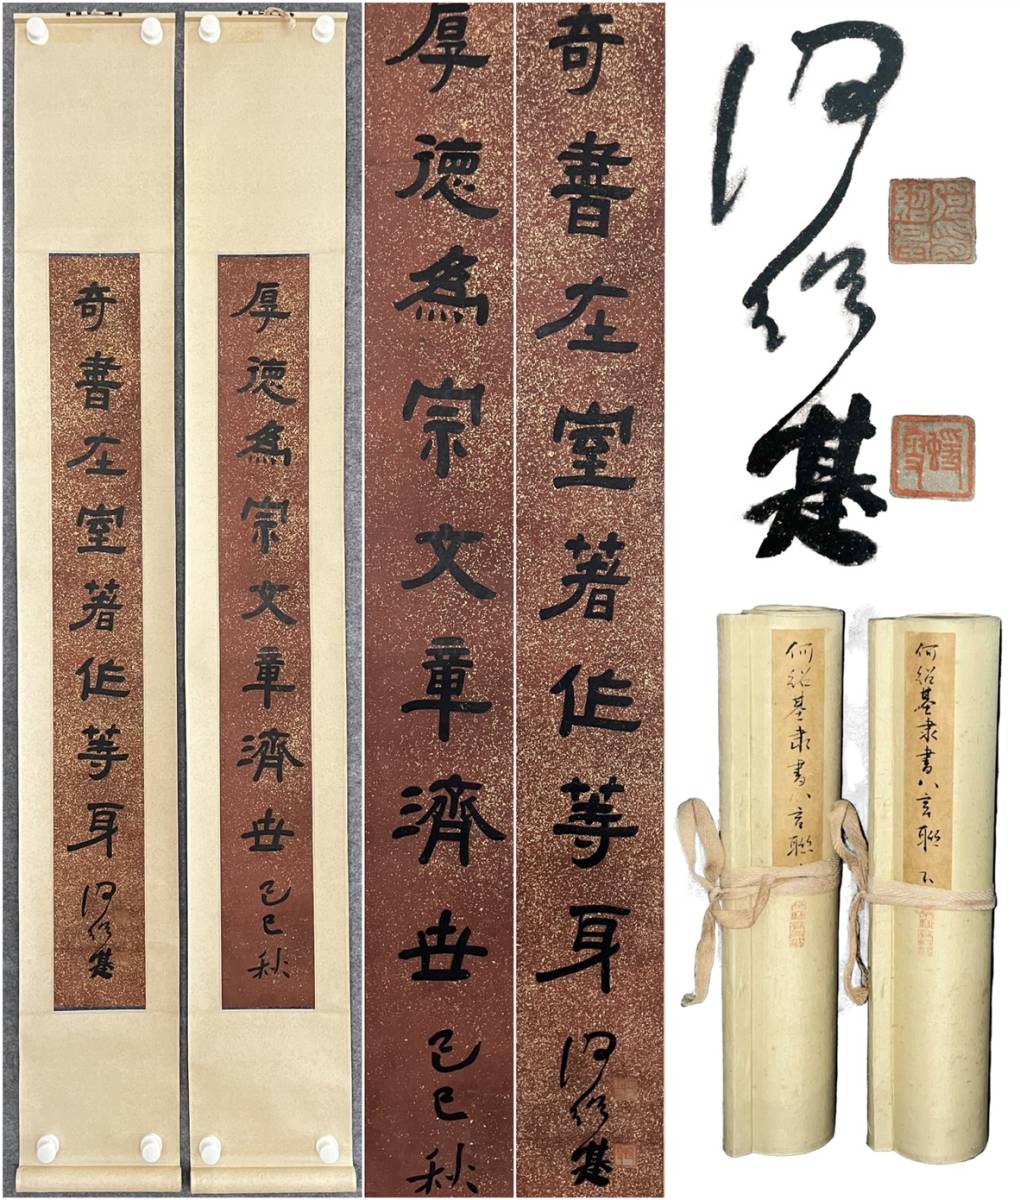 奇書在室著作等身
何紹基
厚德為宗文章濟世
己巳秋
厚德為宗文章濟世
己巳秋
奇書在室著作等身
何紹基
何紹基
何紹基隶書八言聯
何紹基隶書八言聯 下